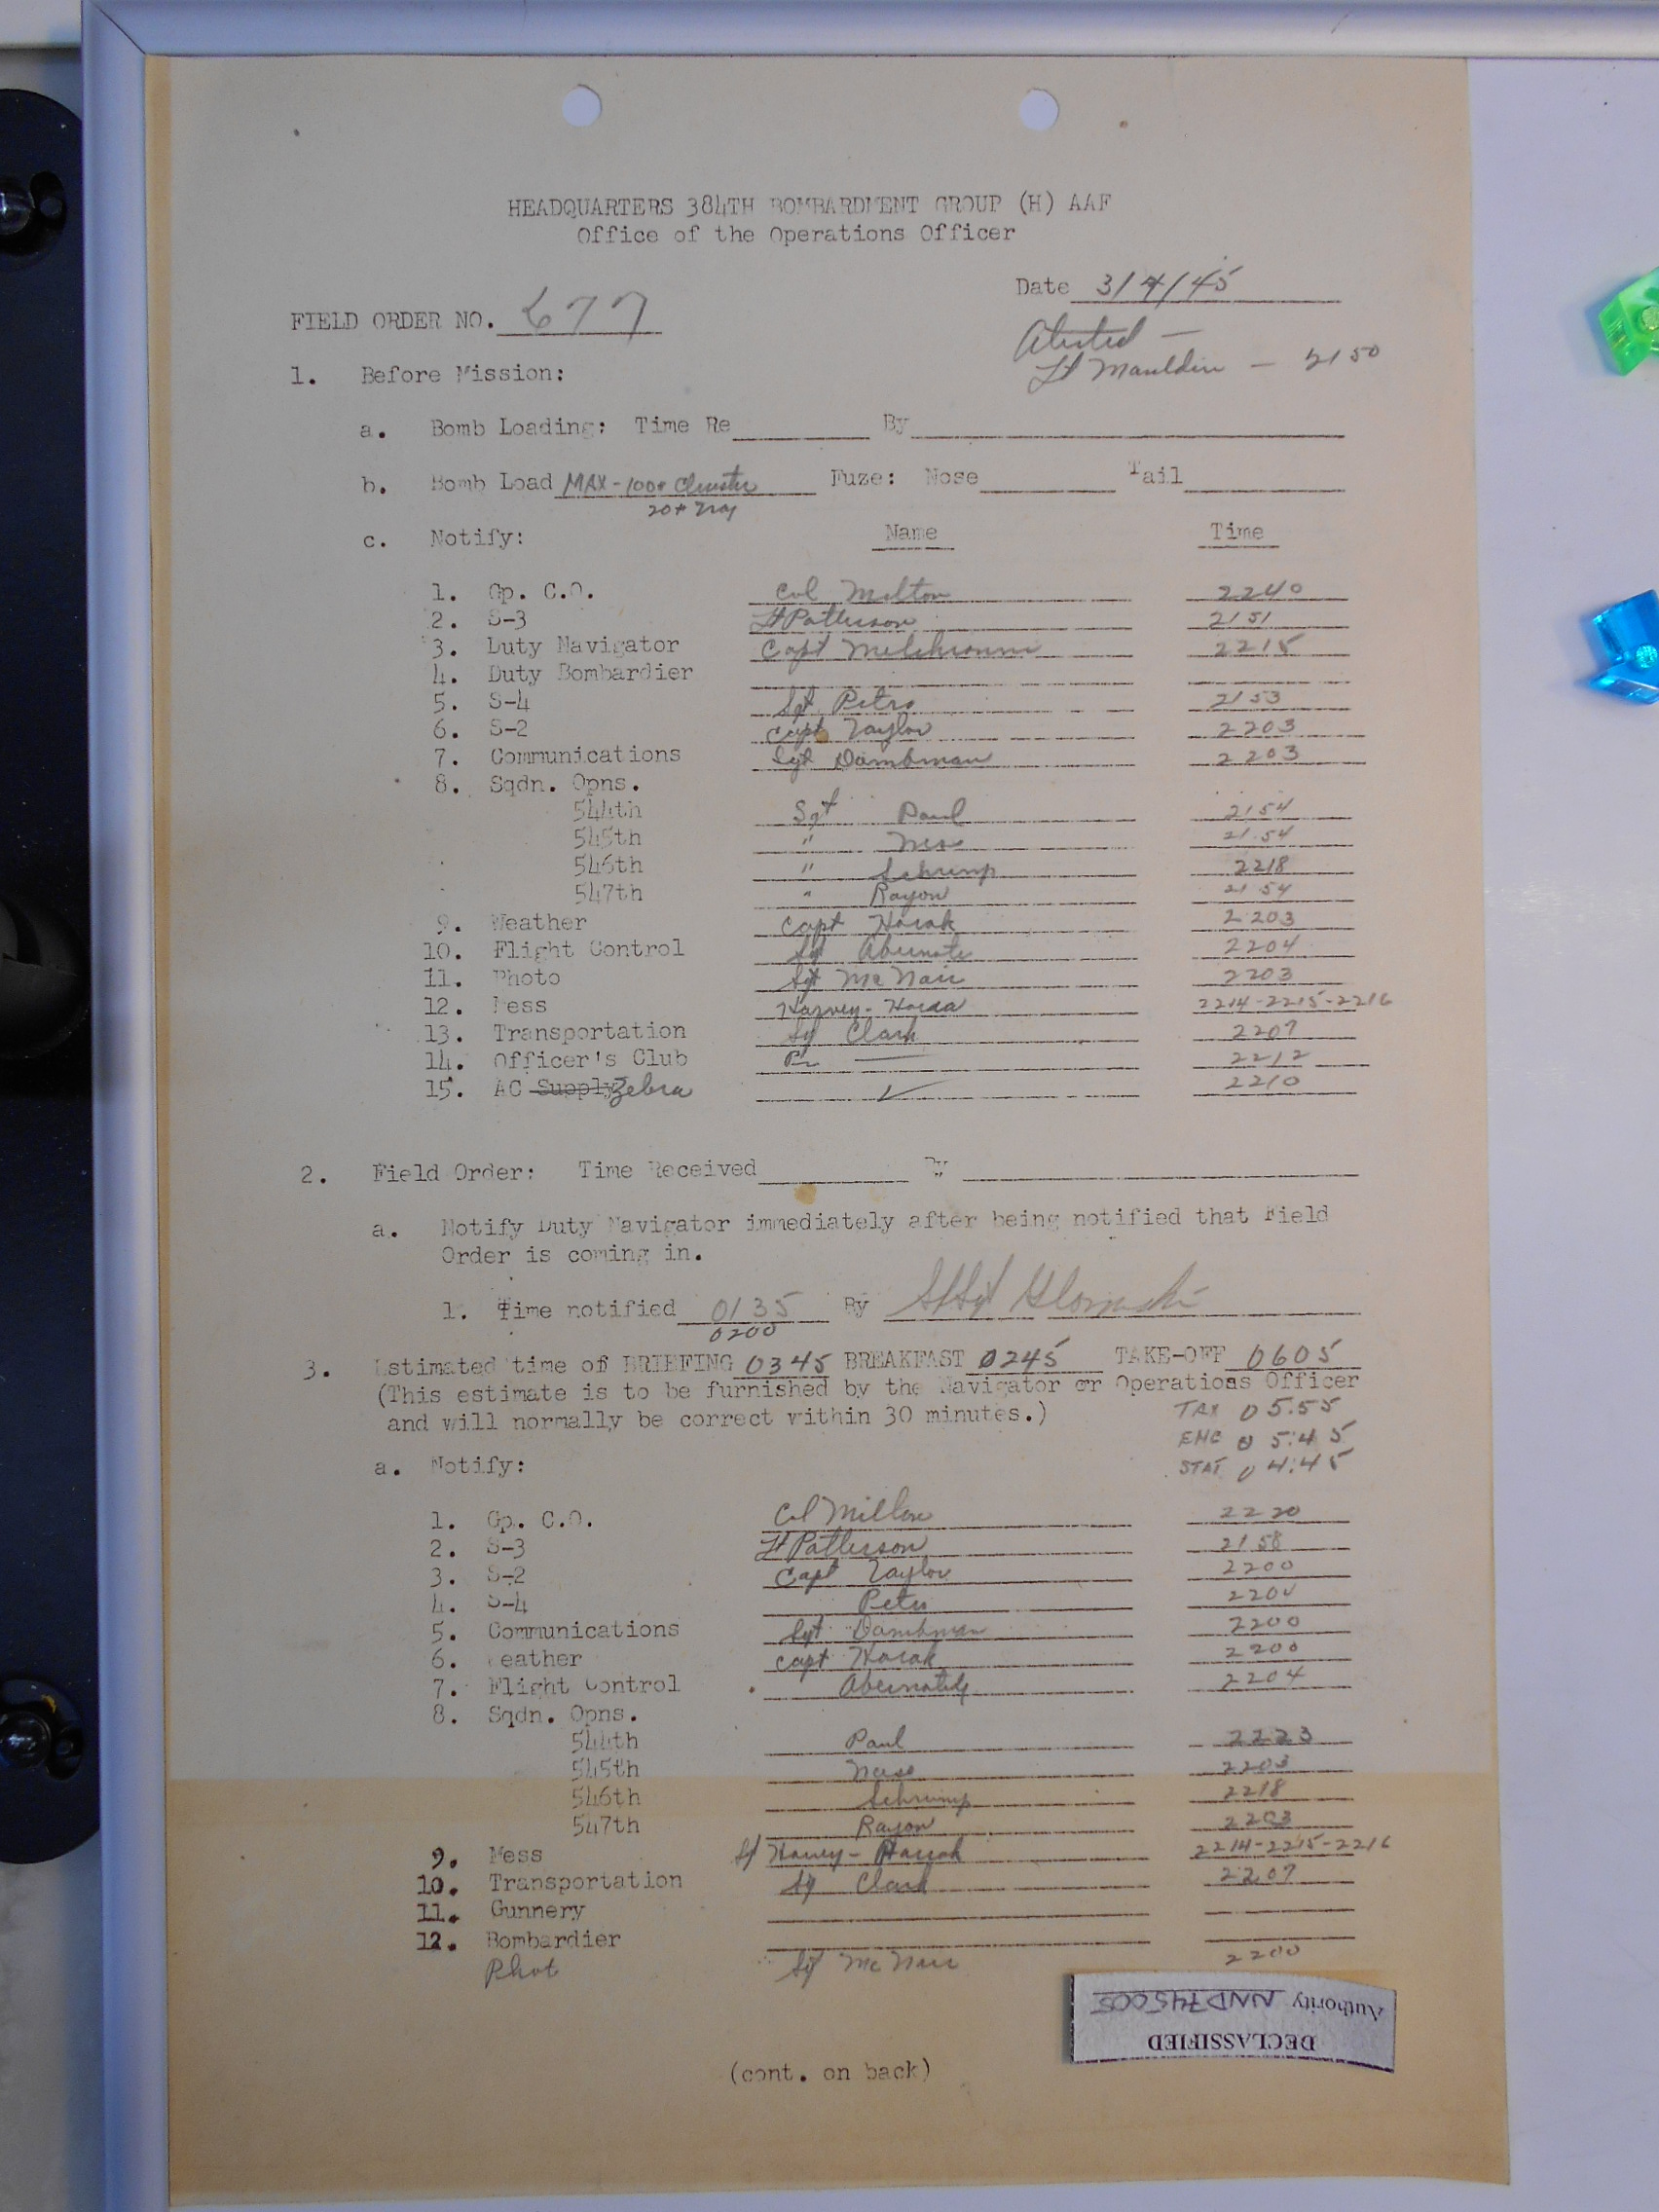 HEADQUARTERS 384TH BOMBARDMENT GROUP (H) AAF
Office of the Operations Officer
Date 3/4/45
FIELD ORDER NO. 677
Alerted —
Lt Mauldin — 2150
1. Before Mission:
a. Bomb Loading: Time Re By
b. Bomb Load MAX - 100# Cluster Fuze: Nose Tail
20#
c. Notify: Name Time
1. Gp. C.O. Col Milton 2240
2. S-3 Lt Patterson 2151
3. Duty Navigator Capt 2215
4. Duty Bombardier
5. S-4 Sgt Petro 2153
6. S-2 Capt Taylor 2203
7. Communications Sgt Dambman 2203
8. Sqdn. Opns.
544th Sgt Paul 2154
545th " 2154
546th " Schrimp 2218
547th " Rayon 2154
9. Weather Capt Horak 2203
10. Flight Control Sgt 2204
11. Photo Sgt McNair 2203
12. Mess Harvey - 2214-2215-2216
13. Transportation Sgt Clark 2207
14. Officer's Club 2212
15. AC Supply Zebra ✓ 2210
2. Field Order: Time Received By
a. Notify Duty Navigator immediately after being notified that Field
Order is coming in.
1. Time notified 0135 By S/Sgt
0200
3. Estimated time of BRIEFING 0345 BREAKFAST 0245 TAKE-OFF 0605
(This estimate is to be furnished by the Navigator or Operations Officer
and will normally be correct within 30 minutes.)
TAX 05:55
ENG 05:45
STAT 04:45
a. Notify:
1. Gp. C.O. Col Milton 2220
2. S-3 Lt Patterson 2158
3. S-2 Capt Taylor 2200
4. S-4 Petro 2200
5. Communications Sgt Dambman 2200
6. Weather Capt Horak 2200
7. Flight Control Abernathy 2204
8. Sqdn. Opns.
544th Paul 2223
545th 2203
546th Schrimp 2218
547th Rayon 2203
9. Mess Sgt Harvey - 2214-2215-2216
10. Transportation Sgt Clark 2207
11. Gunnery
12. Bombardier
Phot Sgt McNair 2200
DECLASSIFIED
Authority NND745005
(cont. on back)